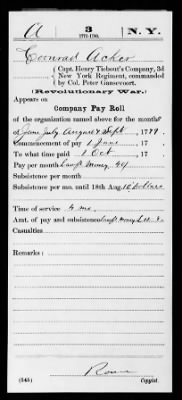 A 3 N. Y.
1775-1783.
Coenrad Acker
Capt. Henry Tiebout's Company, 3d
New York Regiment, commanded
by Col. Peter Gansevoort.
(Revolutionary War.)
Appears on
Company Pay Roll
of the organization named above for the months
of June July August & Sept, 1779.
Commencement of pay 1 June, 17
To what time paid 1 Oct, 17
Pay per month Lawf Money 40/
Subsistence per month
Subsistence per mo. until 18th Aug. 10 Dollars
Time of service 4 mo.
Amt. of pay and subsistence Lawf Money
Casualties
Remarks:
(545) Copyist.